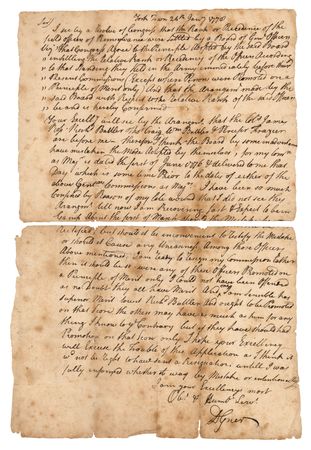 York Town 24th Jany 1778
Sir/ I see by a Resolve of Congress that the Rank or Precedence of the
field officers of Pennsylvania were settled by a Board of Genl Officers
by that Congress approve of the Principle Adopted by the said Board
in settling the relative Rank or Precedency of the Officers according
to that standing they held in the Army immediately before their
Present Commissions Except where Persons were Promoted on a
Principle of Merit only, And that the Arangment made by the
said Board with Respect to the relative Rank of the said officers
be and is hereby Confirmed
Your Excelly will see by the Arangment, that the Cols James
Ross Richd Buttler Thos Craig Wm Buttler & Persifr Frazier
are before me. Therefore I think the Board by some means
have mistaken the Mode adopted by themselves, for my Com
as Majr is dated the first of June 1776 & delivered to me that
Day, which is some time Prior to the dates of either of the
above Gentn Commissions as Majr. I have been so much
Confused by Reason of my late wound that I did not see this
Arangmt till now I am Recovering fast & Expect to be in
Camp About the first of March
rectefied, but should it be inconvenient to rectefy the Mistake
or should it Cause any Uneasiness Among those officers
Above mentioned. I am ready to resign my Commission rather
then it should be so were any of these Officers Promoted on
a Principle of Merit only I could not have been offended
as no doubt they all have Merit And, I am sensible has
superior Merit Count Richd Buttler and ought to be Promoted
on that score the others may have as much as him for any
thing I know to ye Contrary but if they should have had
Promotion on that score only I hope your Excellency
will Excuse the trouble of this Application as I think it
wd not be right to have sent a Resignation untill I was
fully informed whether it was by Mistake or intentionally
I am your Excellencys most
Obt & Humbe Servt
D Grier